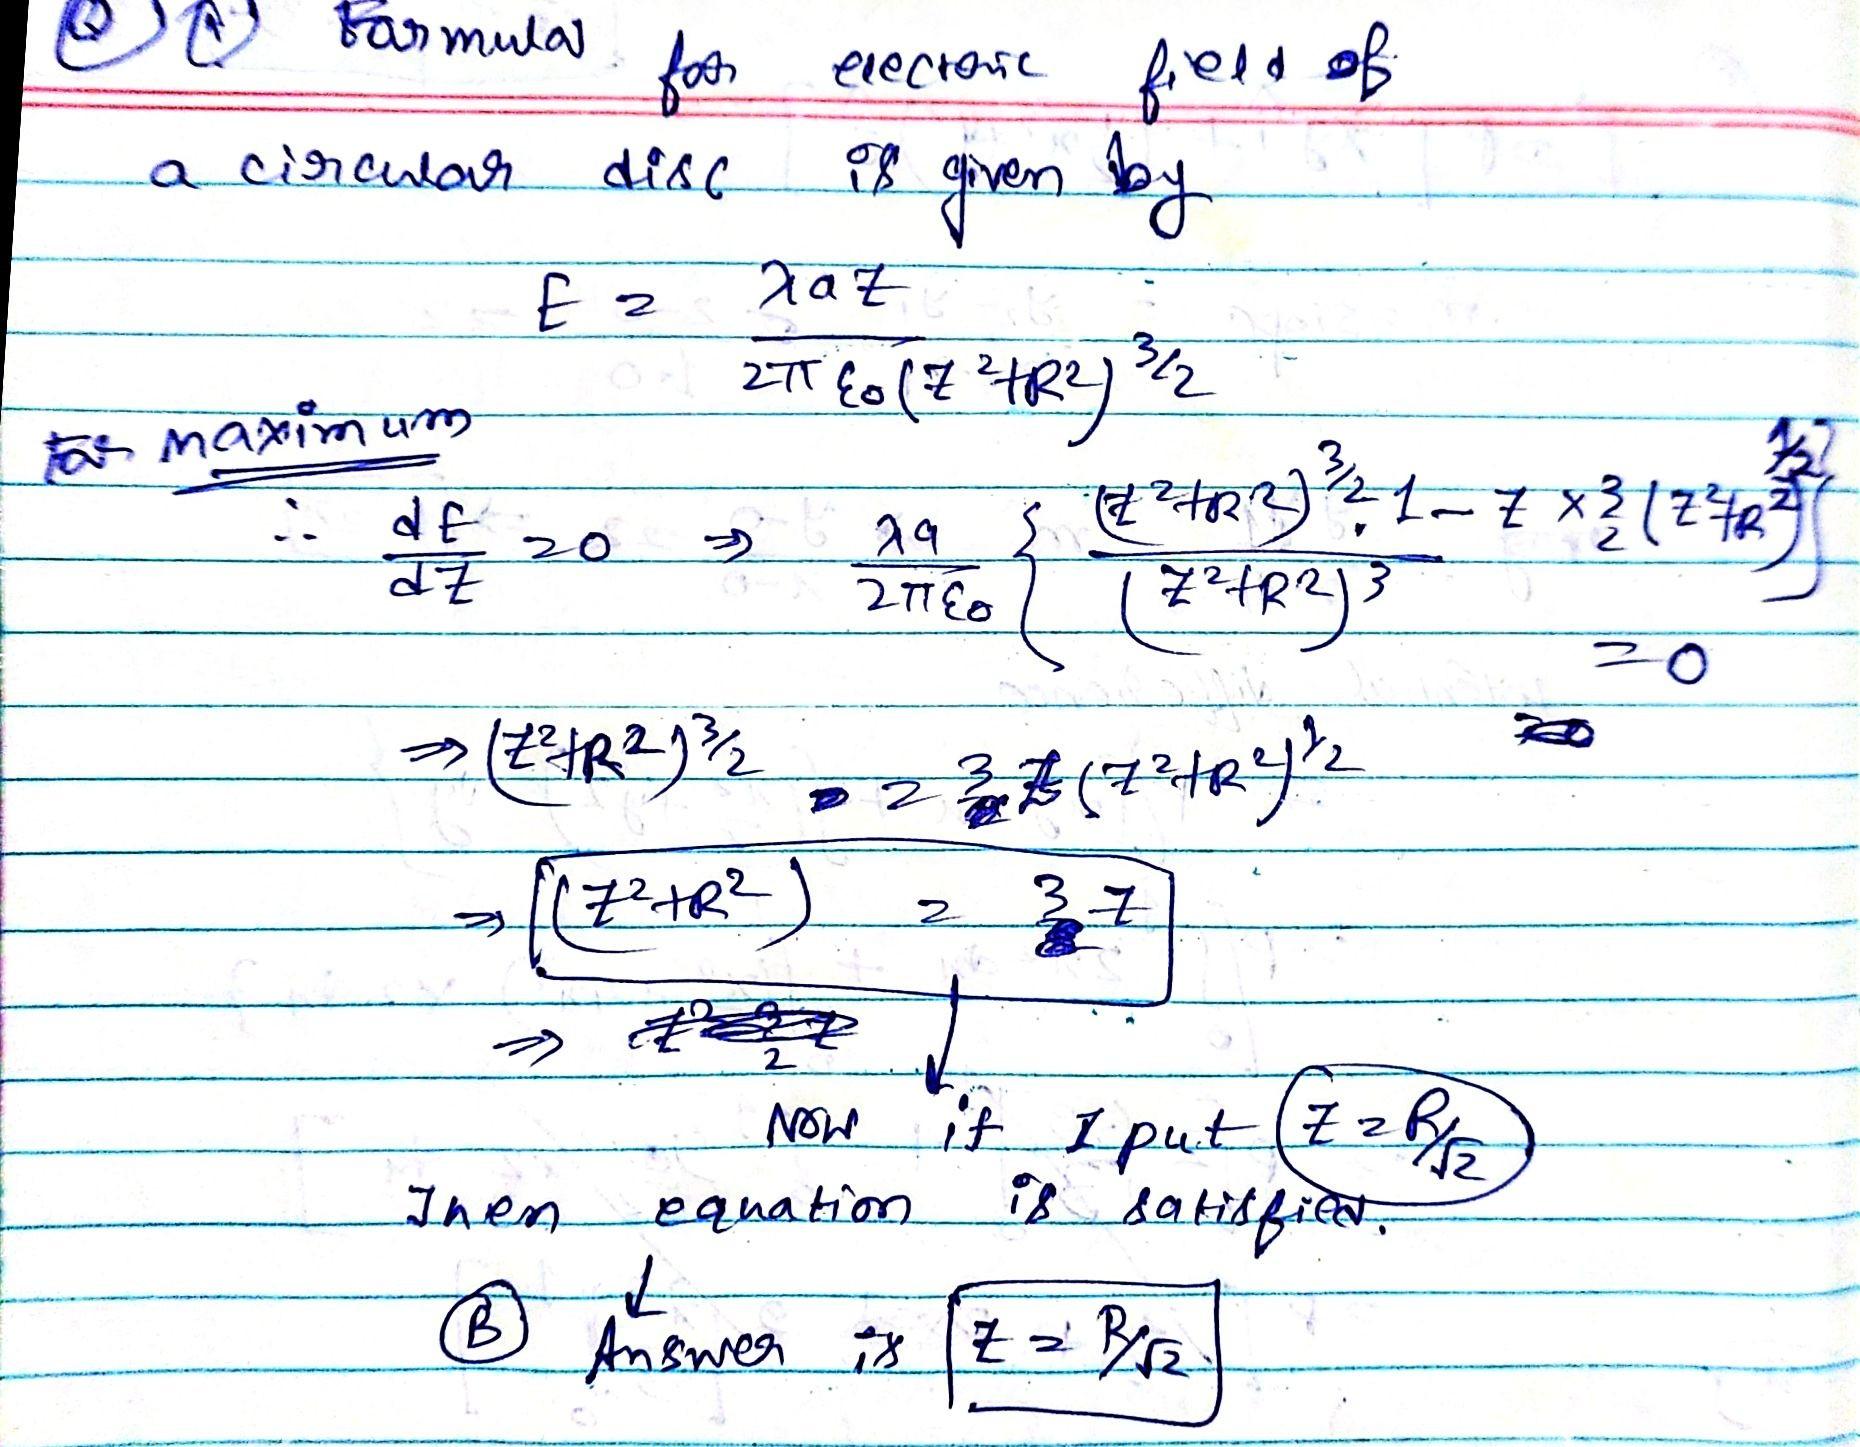 Q) A) Formular for electric field of
a circular disc is given by
E = λaZ / 2πε₀(Z²+R²)^3/2
For maximum
∴ dE/dZ = 0 ⇒ λa/2πε₀ { (Z²+R²)^3/2 . 1 - Z × 3/2 (Z²+R²)^1/2 / (Z²+R²)³ }
= 0
⇒ (Z²+R²)^3/2 = 3 Z (Z²+R²)^1/2
⇒ (Z²+R²) = 3 Z
⇒
Now if I put Z = R/√2
Then equation is satisfied.
B Answer is Z = R/√2